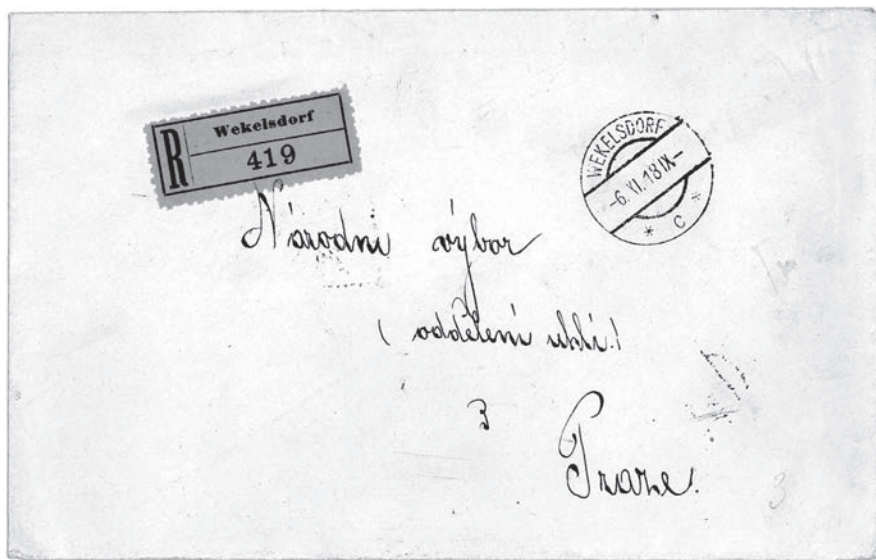 R
Wekelsdorf
419
WEKELSDORF
-6.XI.18 IX-
* C *
Národní výbor
(oddělení uhlí.)
Praze.
3